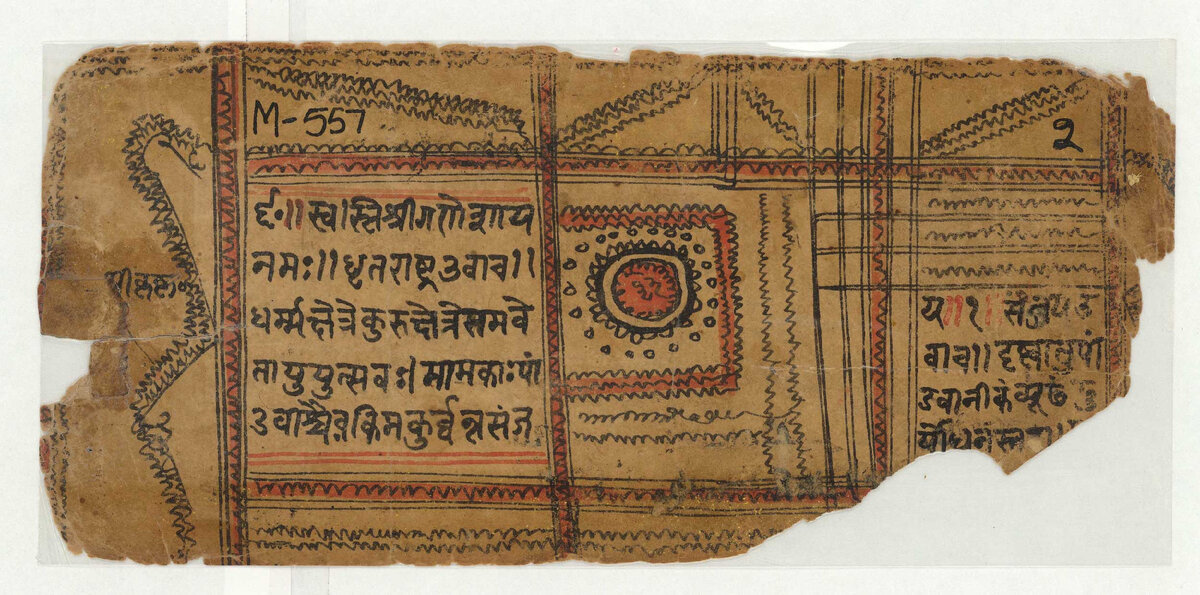 M-557
2
र्द्दः॥ स्वास्ति श्रीगणेशाय
नमः॥ धृतराष्ट्र उवाच॥
धर्म्मक्षेत्रे कुरुक्षेत्रे समवे
ता युयुत्सवः। मामकाः पां
डवाश्चैव किमकुर्व्वत्न संज
य॥१॥ संजय उ
वाच॥ दृस्वा तु पां
डवानीकं व्यूढं